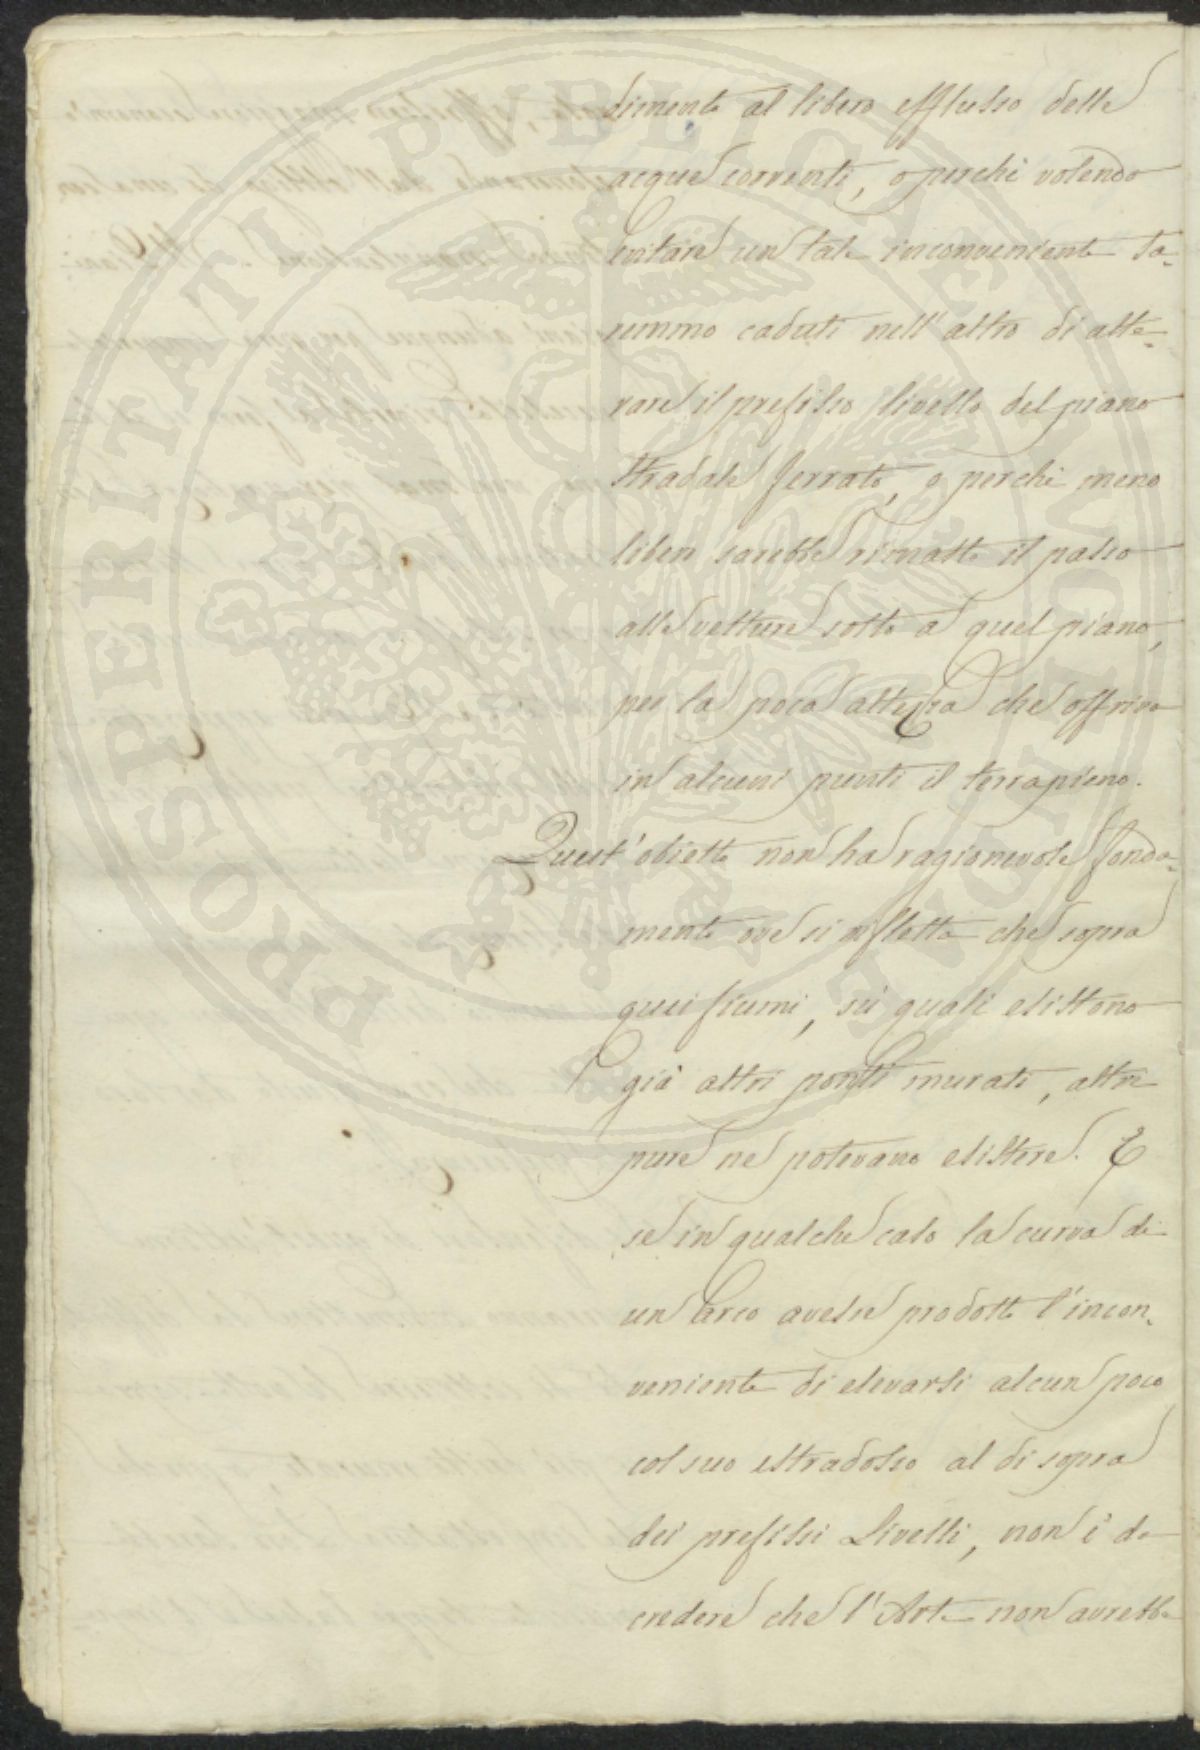 dimento al libero efflusso delle
acque correnti, o perchè volendo
evitare un tale inconveniente sa-
remmo caduti nell'altro di alte-
rare il prefisso livello del piano
stradale ferrato, o perchè meno
libero sarebbe rimasto il passo
alle vetture sotto a quel piano,
per la poca altezza che offriva
in alcuni punti il terrapieno.
Quest'obietto non ha ragionevole fonda-
mento ove si rifletta che sopra
quei fiumi, sù quali esistono
già altri ponti murati, altri
pure ne potevano esistere. E
se in qualche caso la curva di
un'arco avesse prodotto l'incon-
veniente di elevarsi alcun poco
col suo estradosso al di sopra
dei prefissi Livelli, non è da
credere che l'Arte non avrebbe
PROSPERITATI PVBLICAE AVGENDAE